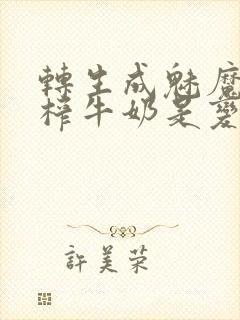 轉生成魅魔
榨牛奶是變
許美荣